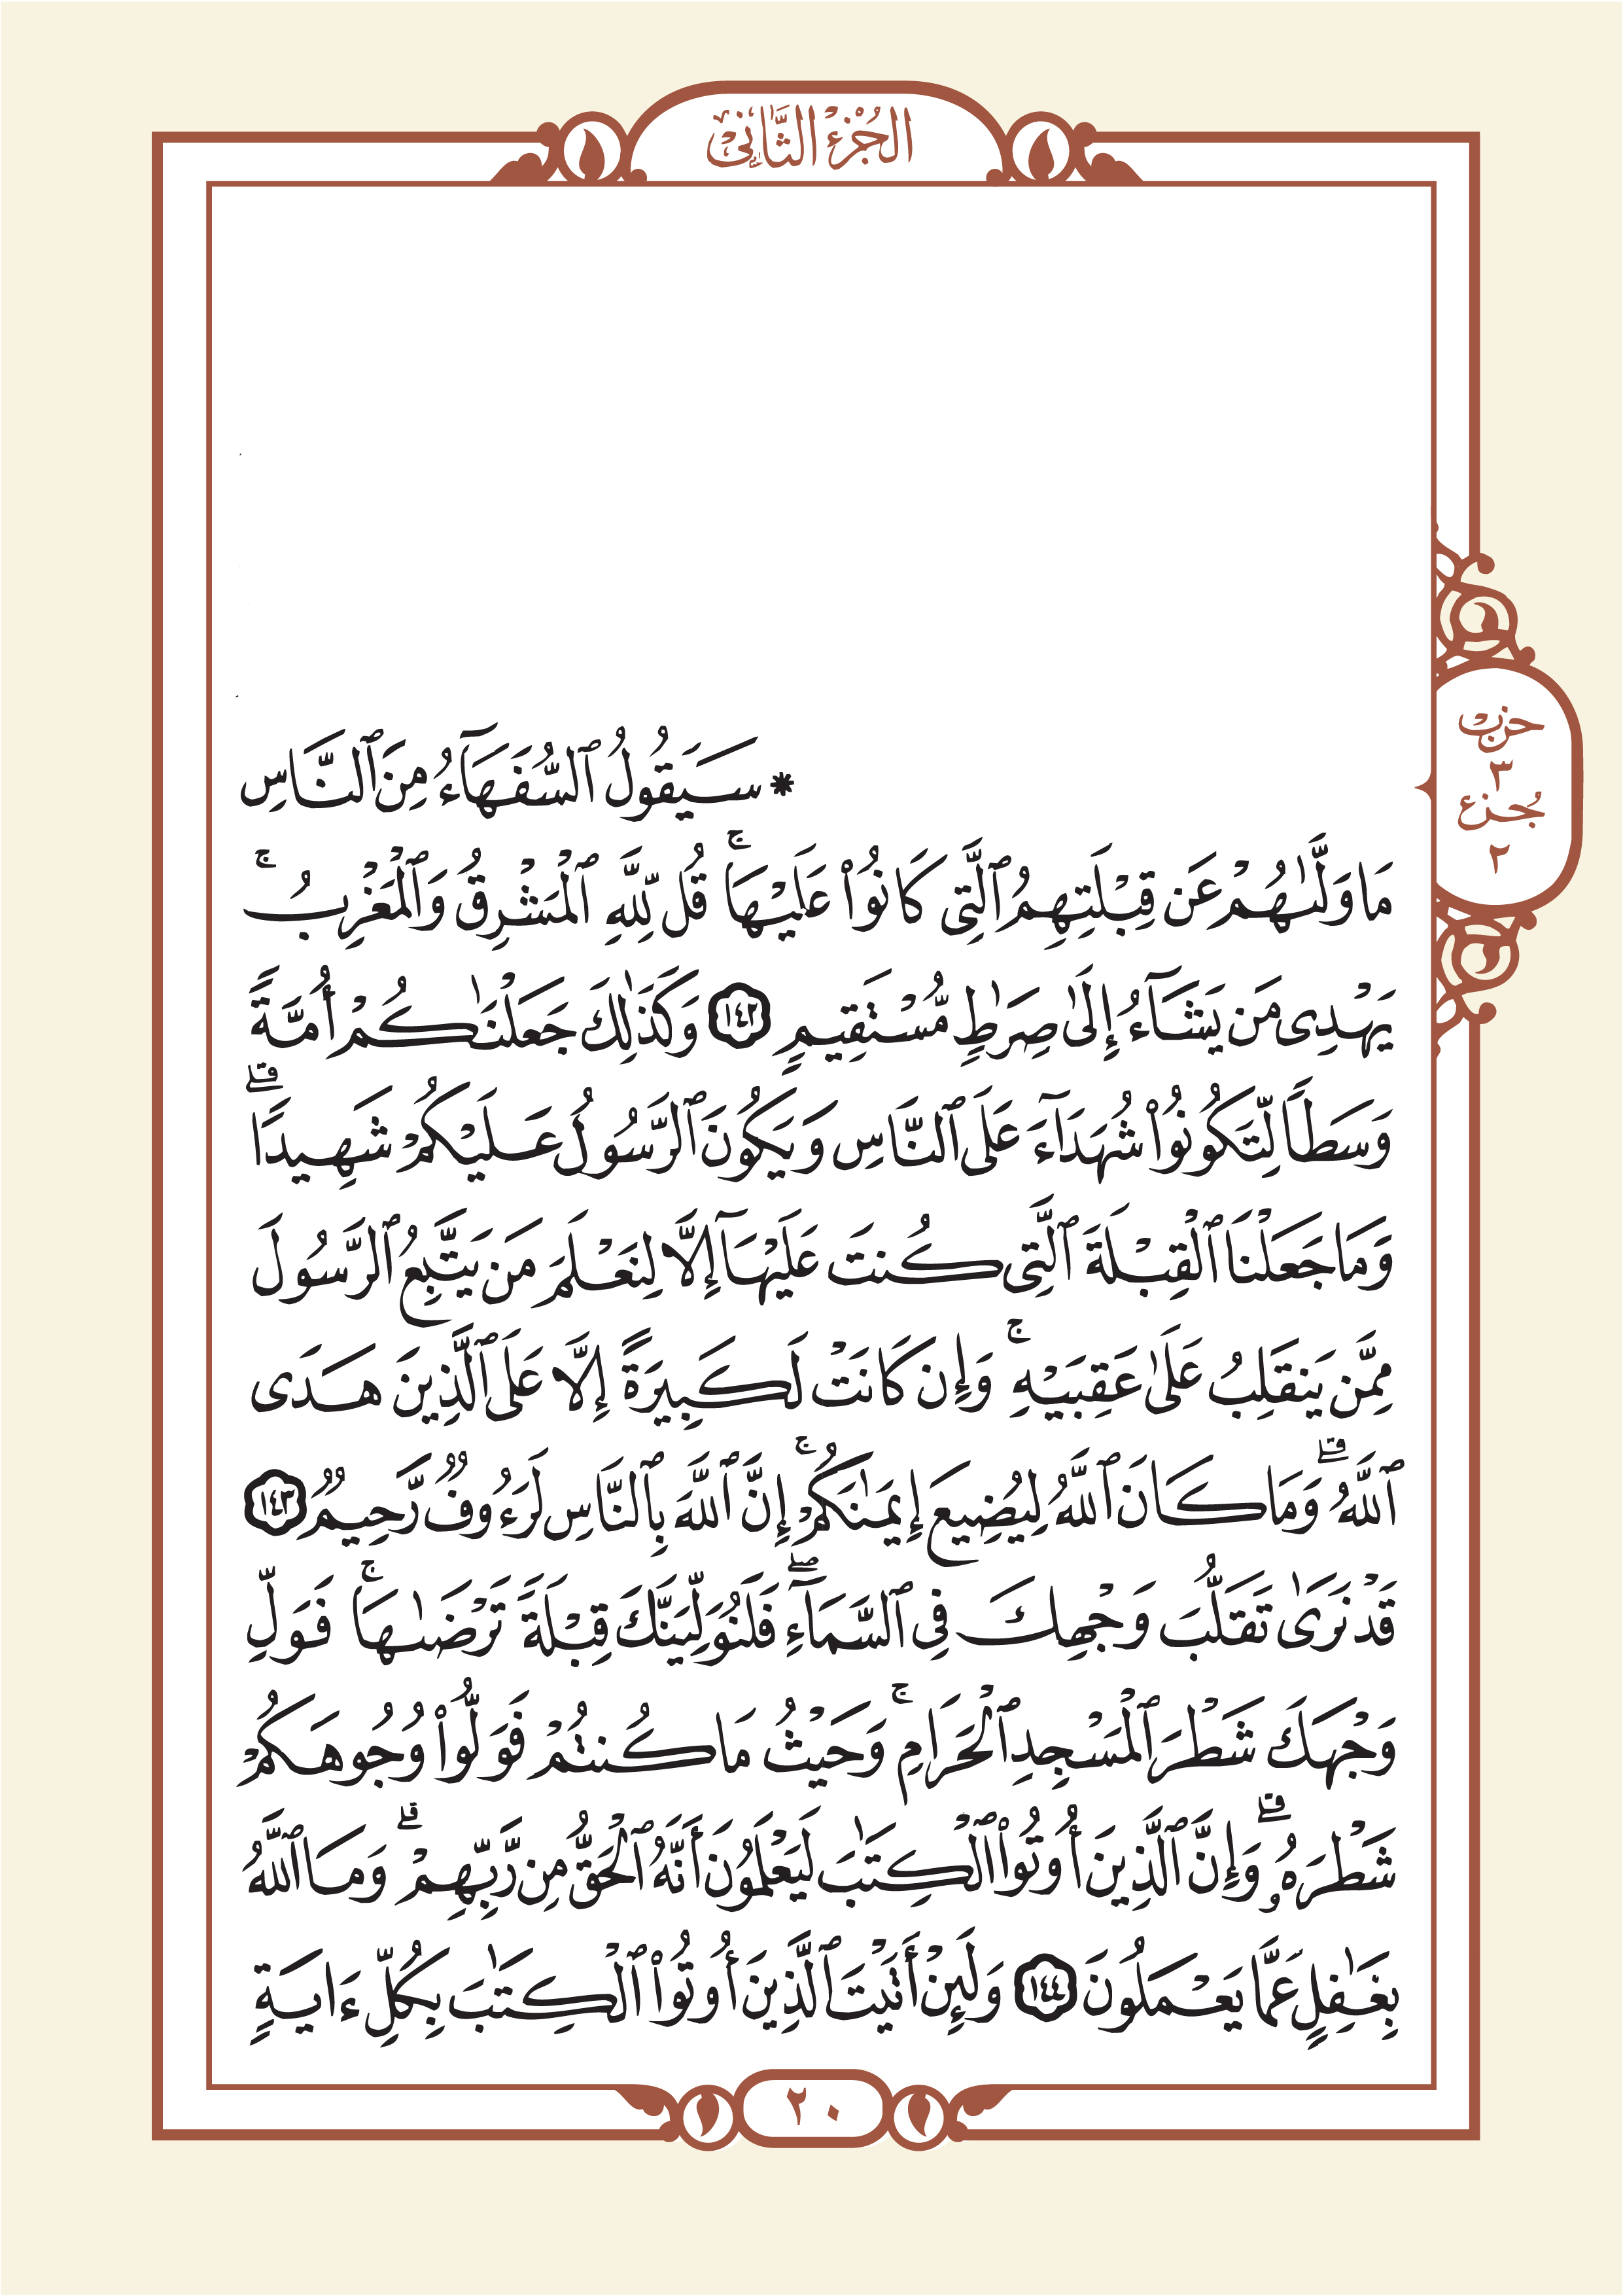 الجُزْءُ الثَّانِي
حزب
٣
جزء
٢
* سَيَقُولُ ٱلسُّفَهَآءُ مِنَ ٱلنَّاسِ
مَا وَلَّىٰهُمْ عَن قِبْلَتِهِمُ ٱلَّتِى كَانُوا۟ عَلَيْهَا ۚ قُل لِّلَّهِ ٱلْمَشْرِقُ وَٱلْمَغْرِبُ ۚ
يَهْدِى مَن يَشَآءُ إِلَىٰ صِرَٰطٍ مُّسْتَقِيمٍ ١٤٢ وَكَذَٰلِكَ جَعَلْنَٰكُمْ أُمَّةً
وَسَطًا لِّتَكُونُوا۟ شُهَدَآءَ عَلَى ٱلنَّاسِ وَيَكُونَ ٱلرَّسُولُ عَلَيْكُمْ شَهِيدًا ۗ
وَمَا جَعَلْنَا ٱلْقِبْلَةَ ٱلَّتِى كُنتَ عَلَيْهَآ إِلَّا لِنَعْلَمَ مَن يَتَّبِعُ ٱلرَّسُولَ
مِمَّن يَنقَلِبُ عَلَىٰ عَقِبَيْهِ ۚ وَإِن كَانَتْ لَكَبِيرَةً إِلَّا عَلَى ٱلَّذِينَ هَدَى
ٱللَّهُ ۗ وَمَا كَانَ ٱللَّهُ لِيُضِيعَ إِيمَٰنَكُمْ ۚ إِنَّ ٱللَّهَ بِٱلنَّاسِ لَرَءُوفٌ رَّحِيمٌ ١٤٣
قَدْ نَرَىٰ تَقَلُّبَ وَجْهِكَ فِى ٱلسَّمَآءِ ۖ فَلَنُوَلِّيَنَّكَ قِبْلَةً تَرْضَىٰهَا ۚ فَوَلِّ
وَجْهَكَ شَطْرَ ٱلْمَسْجِدِ ٱلْحَرَامِ ۚ وَحَيْثُ مَا كُنتُمْ فَوَلُّوا۟ وُجُوهَكُمْ
شَطْرَهُۥ ۗ وَإِنَّ ٱلَّذِينَ أُوتُوا۟ ٱلْكِتَٰبَ لَيَعْلَمُونَ أَنَّهُ ٱلْحَقُّ مِن رَّبِّهِمْ ۗ وَمَا ٱللَّهُ
بِغَٰفِلٍ عَمَّا يَعْمَلُونَ ١٤٤ وَلَئِنْ أَتَيْتَ ٱلَّذِينَ أُوتُوا۟ ٱلْكِتَٰبَ بِكُلِّ ءَايَةٍ
٢٠